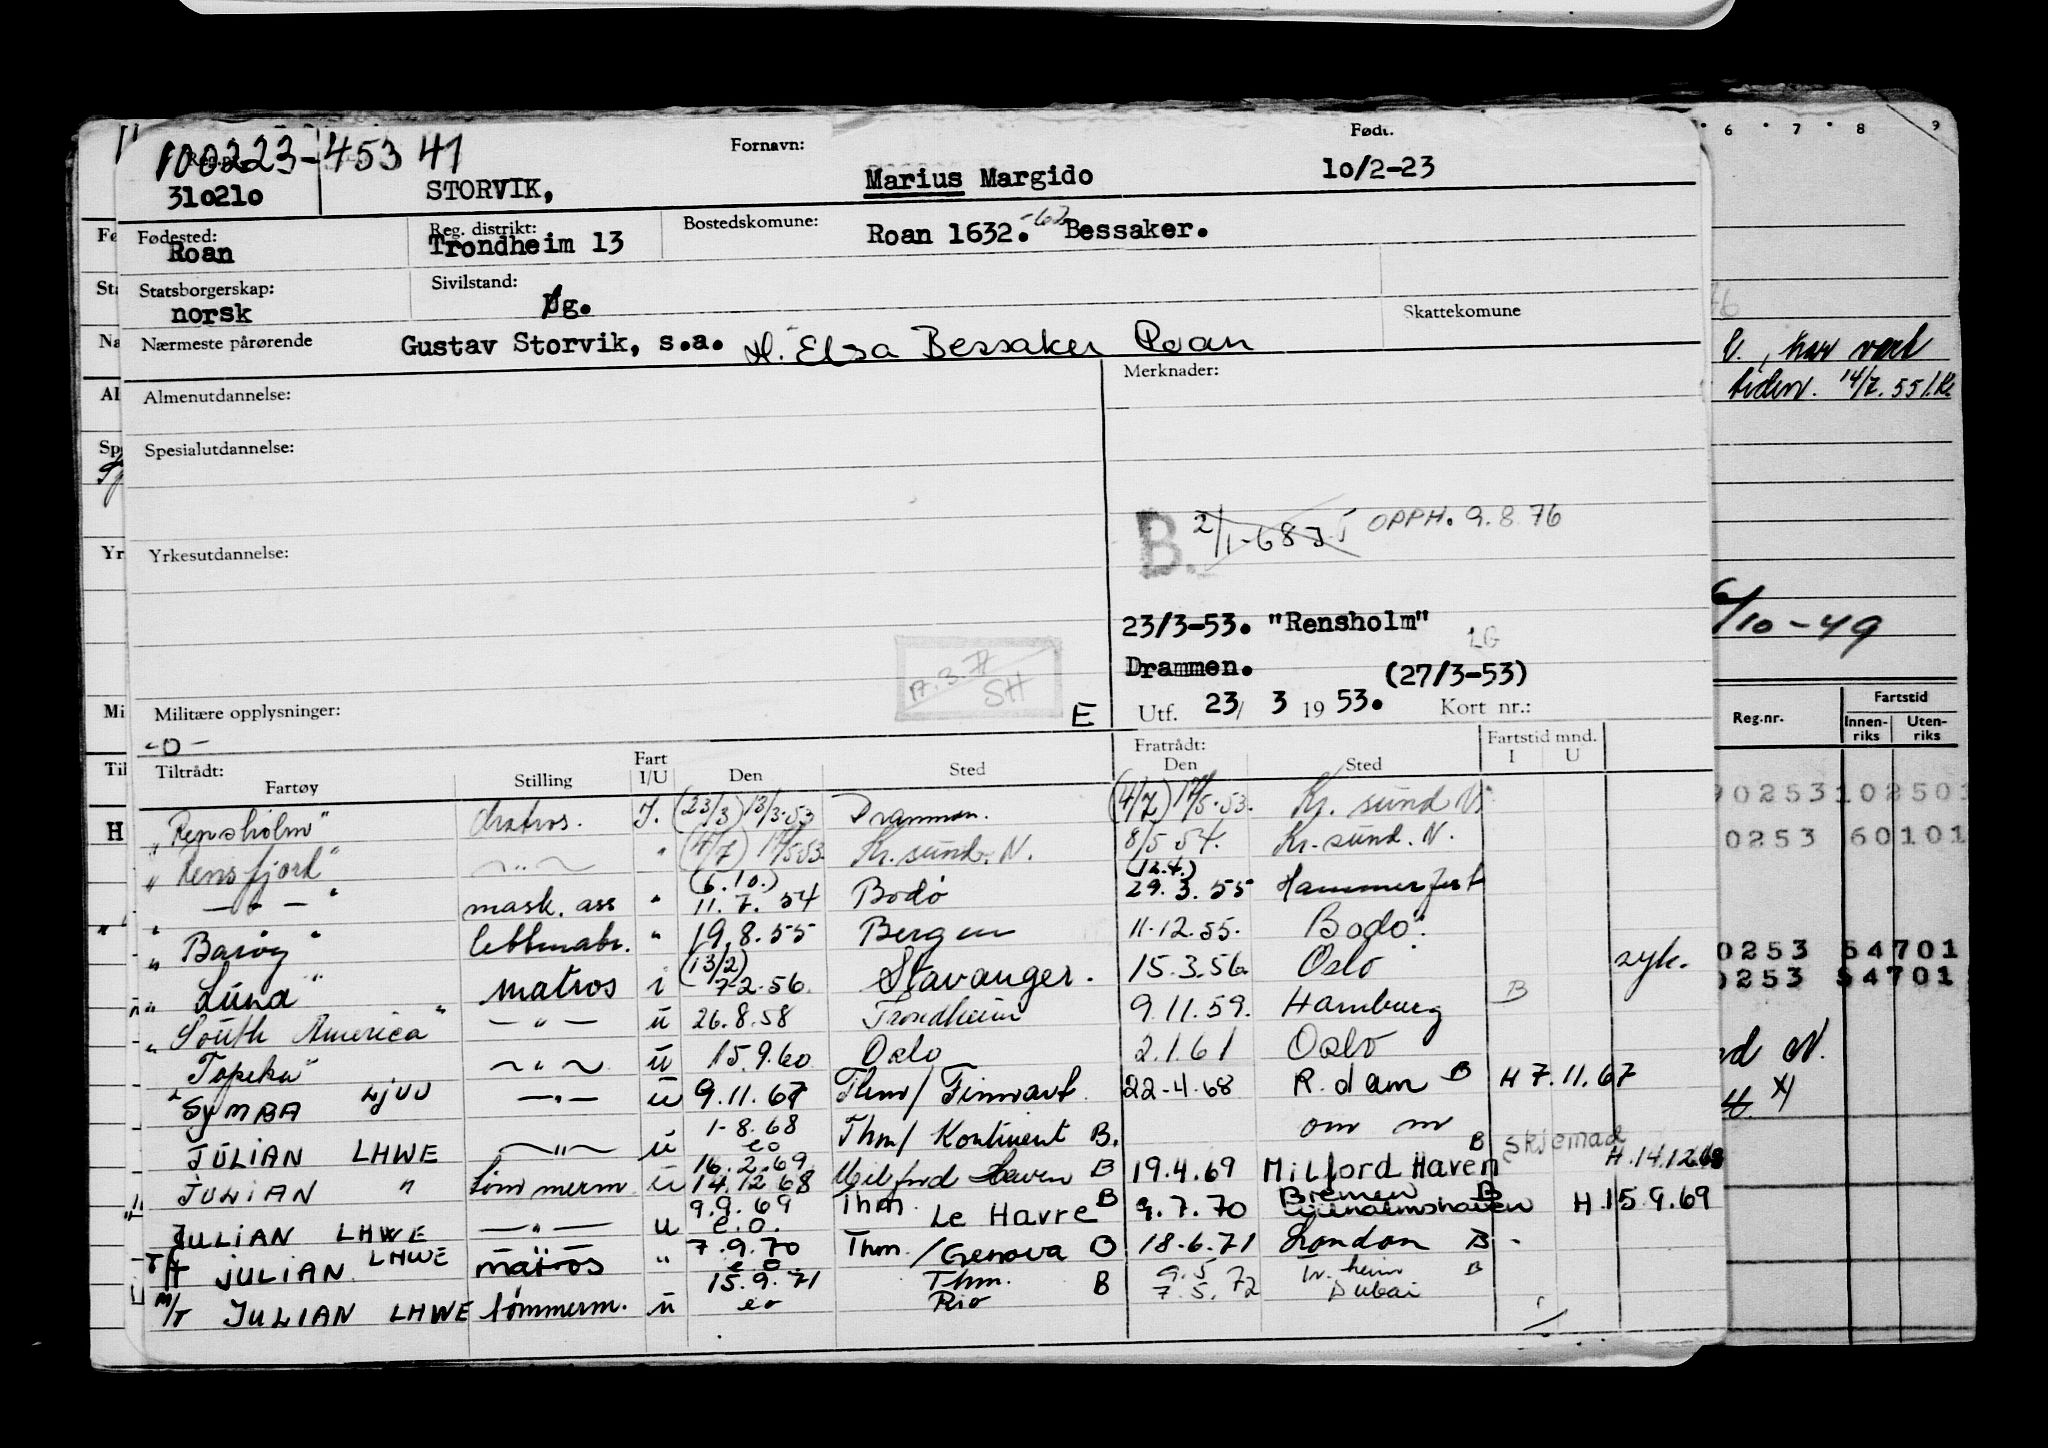 100223-45341
Reg.nr.
Fornavn:
Født.
310210
STORVIK,
Marius Margido
10/2-23
Fødested:
Roan
Reg. distrikt:
Trondheim 13
Bostedskomune:
Roan 1632. -62 Bessaker.
Statsborgerskap:
norsk
Sivilstand:
g.
Skattekomune
Nærmeste pårørende
Gustav Storvik, s.a. H. Elsa Bessaker Roan
Almenutdannelse:
Merknader:
Spesialutdannelse:
B. 2/1-68 OPPH. 9.8.76
Yrkesutdannelse:
23/3-53. "Rensholm"
LG
Drammen.
(27/3-53)
SH
E
Utf. 23/ 3 1953. Kort nr.:
Militære opplysninger:
-0-
Tiltrådt:
Fartøy Stilling Fart I/U Den Sted
Fratrådt:
Den Sted
Fartstid mnd.
I U
"Rensholm" Matros. I. (23/3) 13/3-53 Drammen. (4/7) 14/5-53. Kr. sund N.
"Rensfjord" -"- " (4/7) 14/5 53 Kr. sund. N. 8/5 54. Kr. sund. N.
" -"- " mask. ass " (6.10.) 11.7.54 Bodø (12.4.) 29.3.55 Hammerfest
"Barøy" lettmatr. " 19.8.55 Bergen 11.12.55. Bodø.
"Lund" matros i (13/2) 7.2.56. Stavanger. 15.3.56 Oslo syk.
"South America" -"- u 26.8.58 Trondheim 9.11.59. Hamburg B
"Topeka" -"- u 15.9.60 Oslo 2.1.61 Oslo
"SYMRA LJUU -"- u 9.11.67 Thm/ Finnart 22-4-68 R.dam B H 7.11.67
JULIAN LHWE -"- u 1-8.68 eo Thm/ Kontinent B. om m B skjemad
JULIAN " tømmerm u 16.2.69 14.12 68 Milford Haven B 19.4.69 Milford Haven H.14.12.68
JULIAN LHWE -"- u 9.9.69 e.o. Thm. Le Havre B 9.7.70 Bremen B Wilhelmshaven H 15.9.69
T/T JULIAN LHWE matros " 7.9.70 e.o. Thm./Genova O 18-6.71 London B -
M/T JULIAN LHWE tømmerm. u 15.9.71 eo Thm. Rio B 9.5 7.5.72 Tr. heim Dubai B
6 7 8 9
, har vært
tiden. 14/7. 55
/10-49
Reg.nr.
Fartstid
Innen-riks Uten-riks
90253 102501
0253 60101
0253 54701
0253 54701
nd N.
Fø
Sta
Na
Al
Sp
Yr
Mi
Til
H